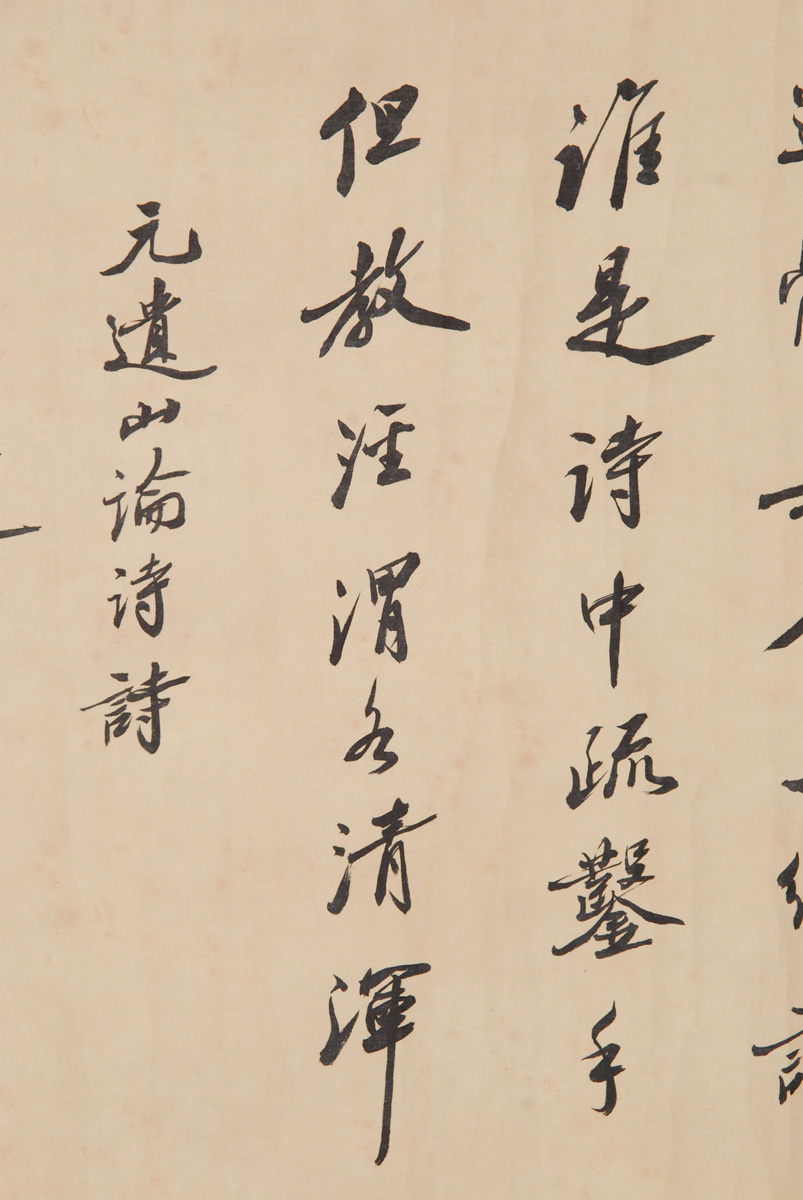 誰是詩中疏鑿手
但教涇渭各清渾
元遺山論詩詩